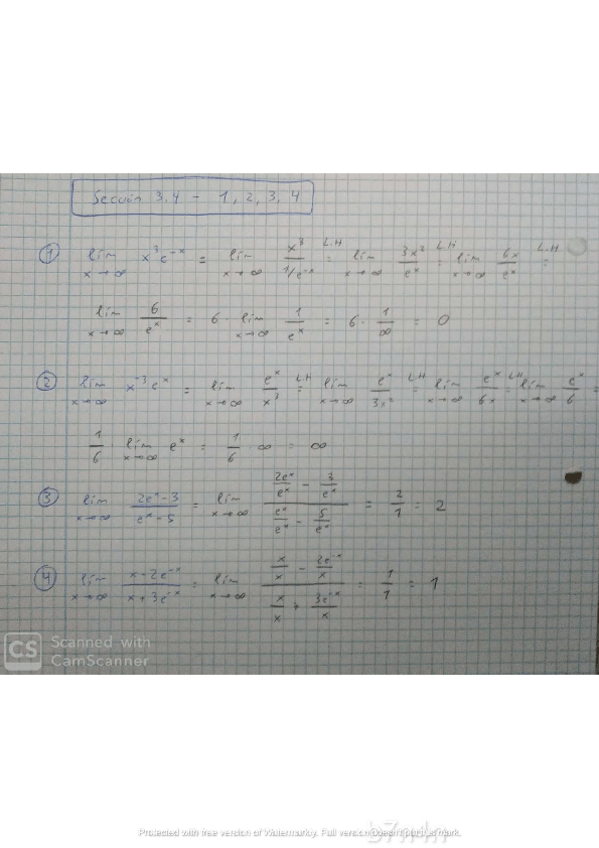 Section 3.4 - 1, 2, 3, 4
① lim x→∞ x³e⁻ˣ = lim x→∞ x³/(1/e⁻ˣ) =(L.H) lim x→∞ 3x²/eˣ =(L.H) lim x→∞ 6x/eˣ =(L.H)
lim x→∞ 6/eˣ = 6 · lim x→∞ 1/eˣ = 6 · 1/∞ = 0
② lim x→∞ x⁻³eˣ = lim x→∞ eˣ/x³ =(L.H) lim x→∞ eˣ/3x² =(L.H) lim x→∞ eˣ/6x =(L.H) lim x→∞ eˣ/6 =
1/6 · lim x→∞ eˣ = 1/6 · ∞ = ∞
③ lim x→∞ (2eˣ-3)/(eˣ-5) = lim x→∞ (2eˣ/eˣ - 3/eˣ)/(eˣ/eˣ - 5/eˣ) = 2/1 = 2
④ lim x→∞ (x-2e⁻ˣ)/(x+3e⁻ˣ) = lim x→∞ (x/x - 2e⁻ˣ/x)/(x/x + 3e⁻ˣ/x) = 1/1 = 1
CS Scanned with
CamScanner
Protected with free version of Watermarkly. Full version doesn't put this mark.